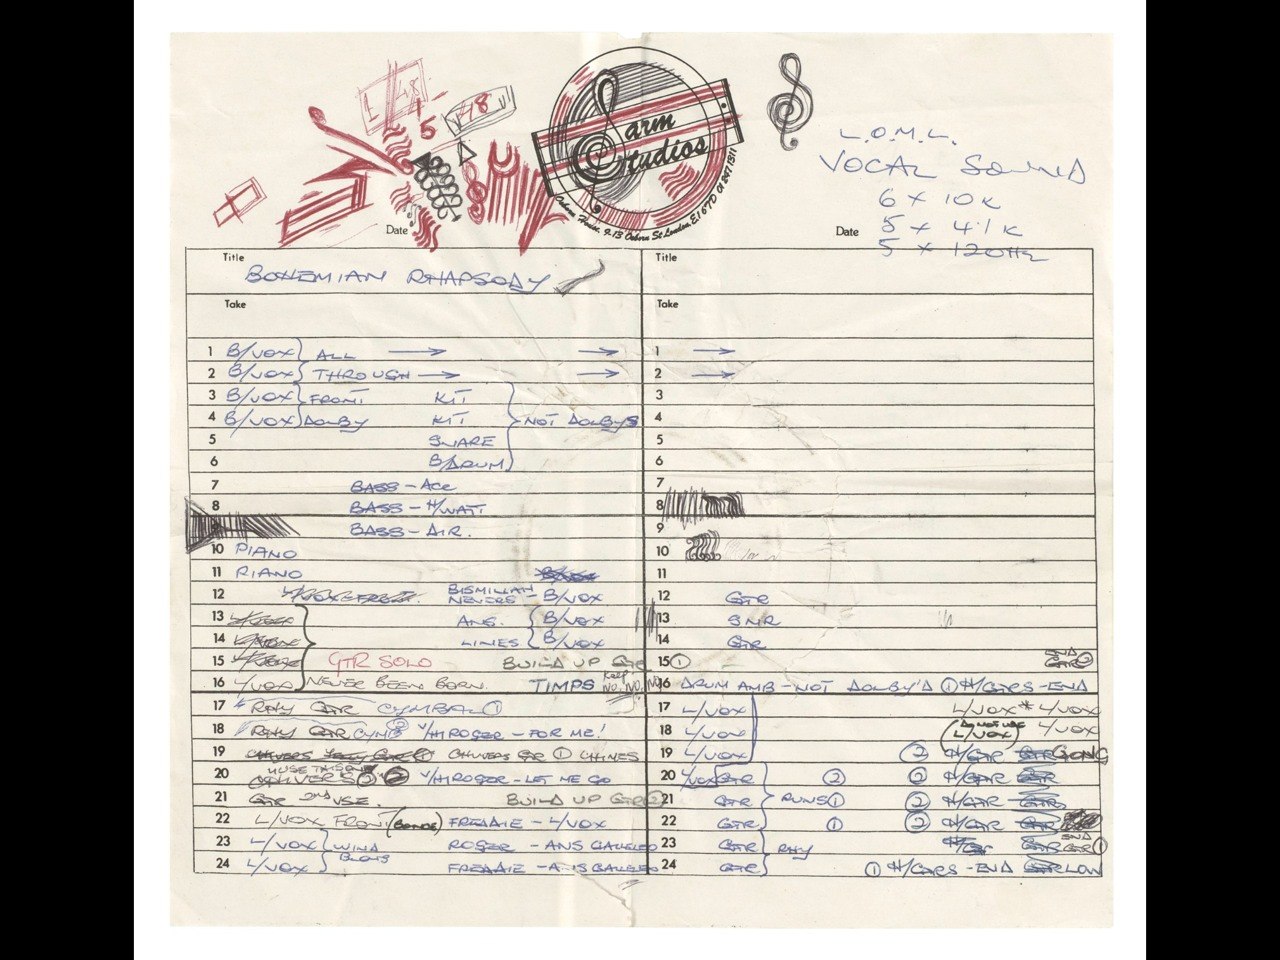 1 48
15
48
Sarm Studios
Osborn House, 9-13 Osborn St London E1 6TD 01 247 1311
L.O.M.L.
VOCAL SOUND
6 x 10K
5 x 4.1K
5 x 120Hz
Date
Date
Title BOHEMIAN RHAPSODY
Title
Take
Take
1 B/VOX ALL
2 B/VOX THROUGH
3 B/VOX FRONT KIT
4 B/VOX DOLBY KIT NOT DOLBYS
5 SNARE
6 B/DRUM
7 BASS - ACC
8 BASS - H/WATT
9 BASS - AIR.
10 PIANO
11 PIANO
12 BISMILLAH NEVERS - B/VOX
13 ANS. B/VOX
14 LINES B/VOX
15 GTR SOLO BUILD UP GTR ①
16 L/VOX NEVER BEEN BORN. TIMPS Keep NO. NO. NO
17 RHY GTR CYMBAL ①
18 RHY GTR CYMB ② V/HI ROGER - FOR ME!
19 CHUVERS GTR ① CHIMES
20 V/HI ROGER - LET ME GO
21 GTR 2ND VSE. BUILD UP GTR ②
22 L/VOX FRONT (BONDE) FREDDIE - L/VOX
23 L/VOX WIND ROGER - ANS GALILEO
24 L/VOX BLOWS FREDDIE - ANS GALILEO
1
2
3
4
5
6
7
8
9
10
11
12 GTR
13 SNR
14 GTR
15 END GTR ②
16 DRUM AMB - NOT DOLBY'D ① H/GTRS - END
17 L/VOX L/VOX * L/VOX
18 L/VOX (DO NOT USE L/VOX) L/VOX
19 L/VOX ② H/GTR GTR GONG
20 L/VOX GTR ② ② H/GTR GTR
21 GTR RUNS ① ② H/GTR GTR
22 GTR ① ② H/GTR GTR
23 GTR RHY END GTR ①
24 GTR ① H/GTRS - END GTR LOW